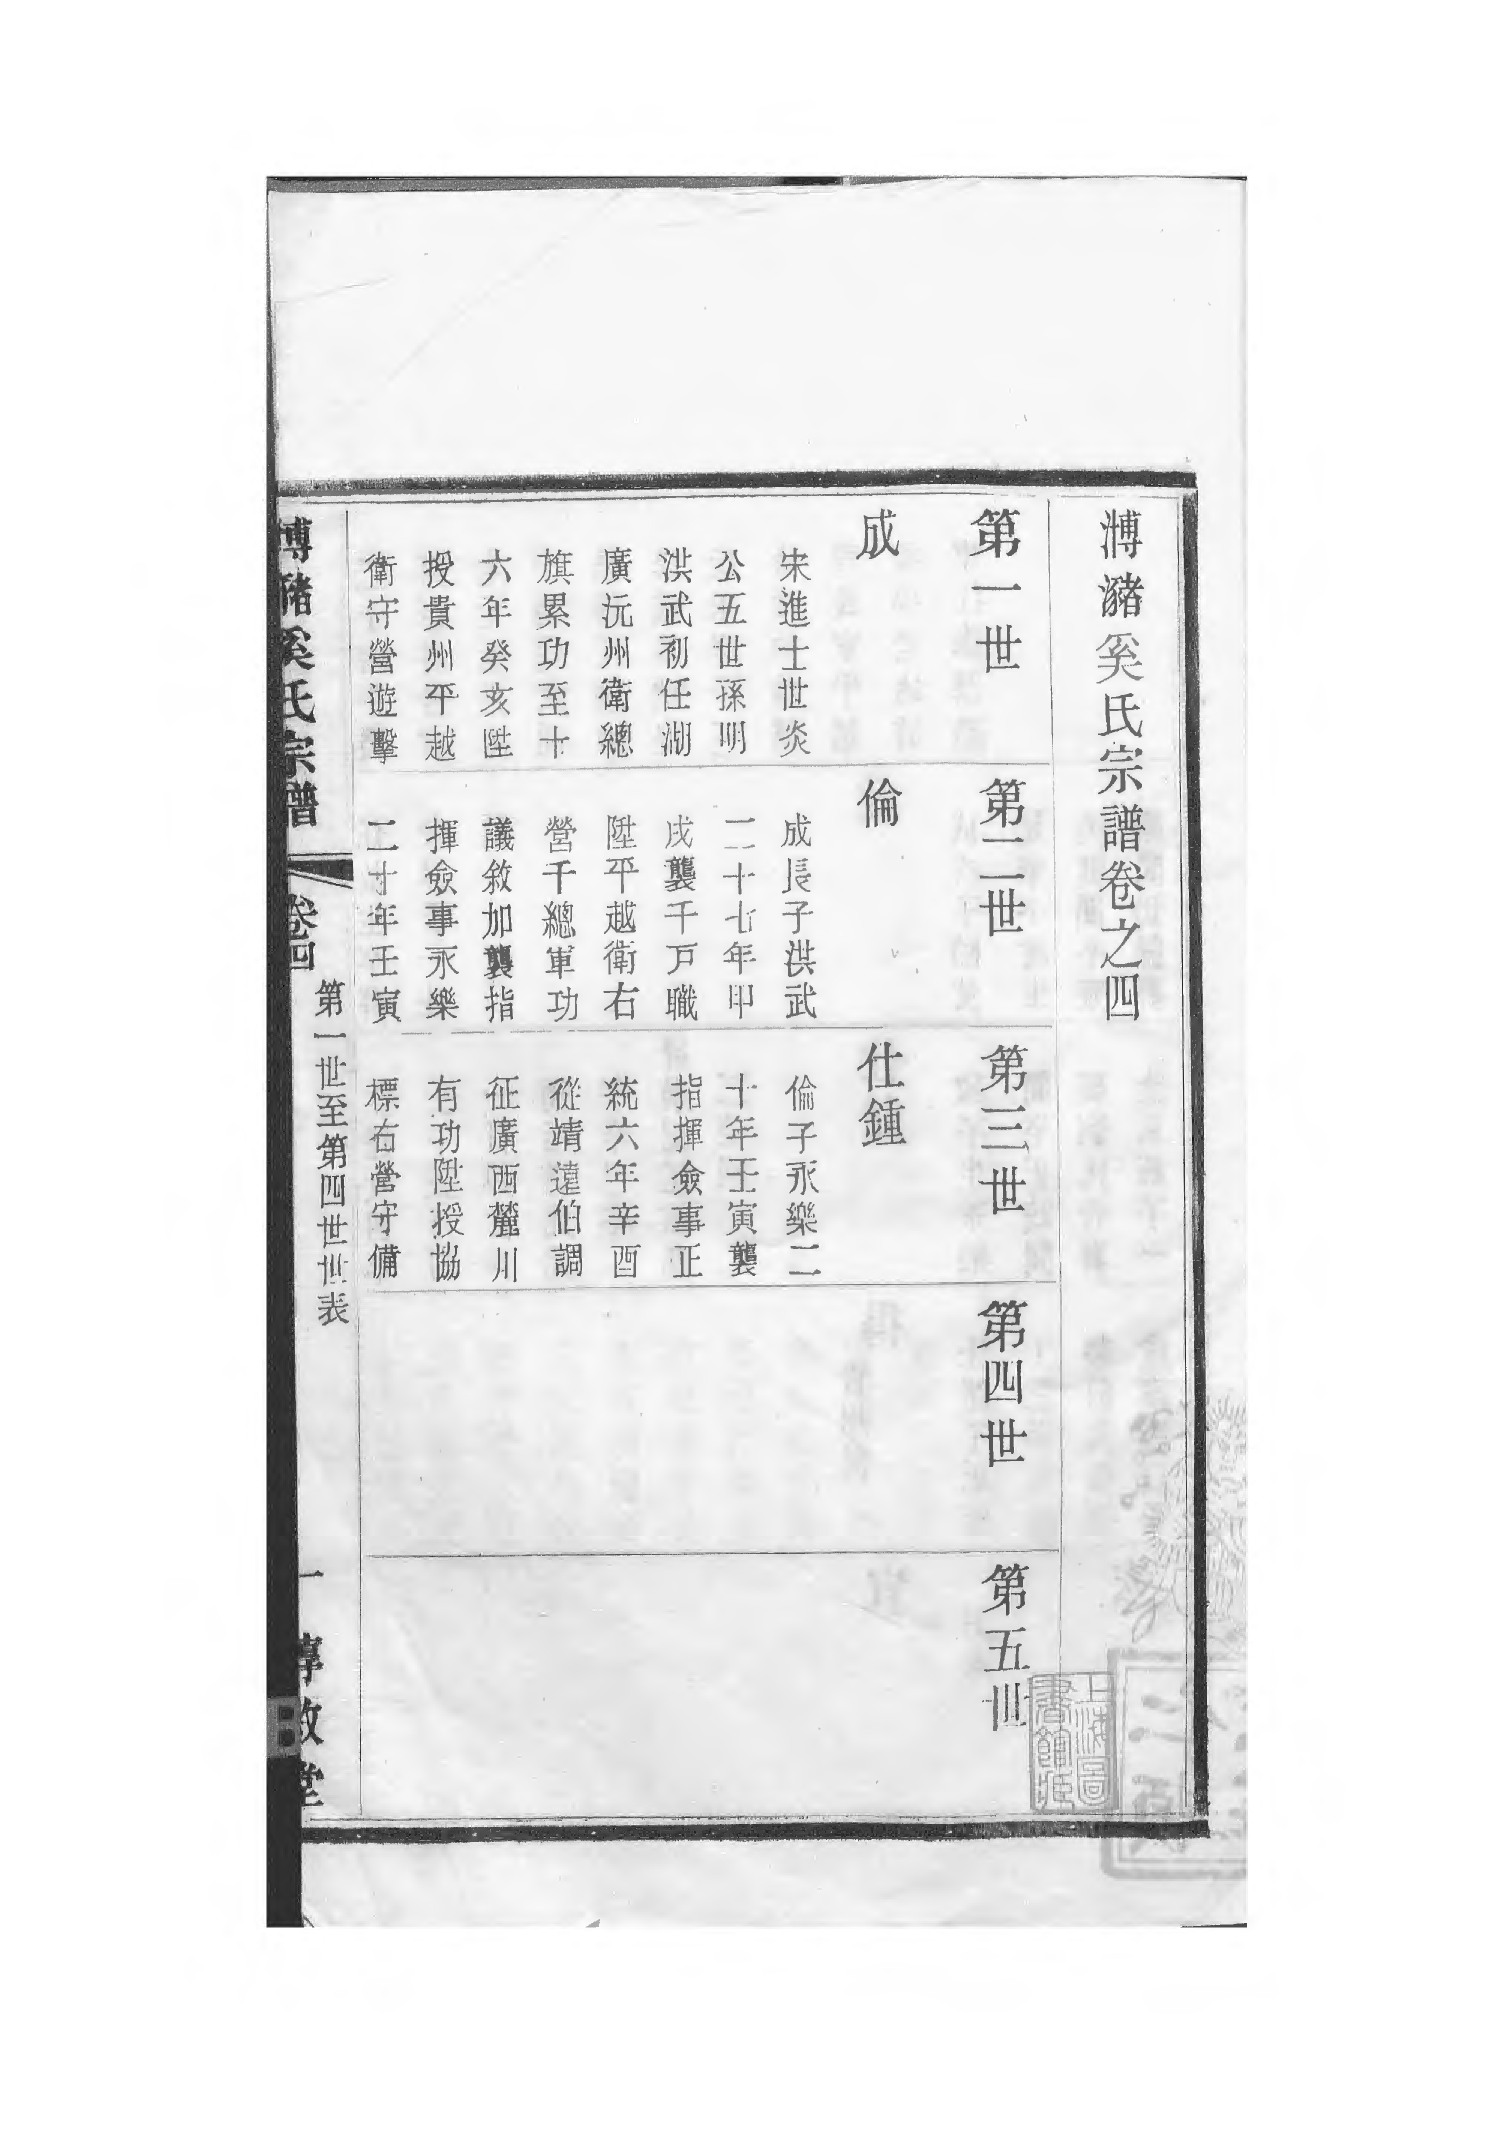 漙瀦奚氏宗譜卷之四
第一世
成
宋進士世炎
公五世孫明
洪武初任湖
廣沅州衛總
旗累功至十
六年癸亥陞
授貴州平越
衛守營遊擊
第二世
倫
成長子洪武
二十七年甲
戌襲千戸職
陞平越衛右
營千總軍功
議敘加襲指
揮僉事永樂
二十年壬寅
第三世
仕鍾
倫子永樂二
十年壬寅襲
指揮僉事正
統六年辛酉
從靖遠伯調
征廣西麓川
有功陞授協
標右營守備
第四世
第五世
上海圖
書館藏
漙瀦奚氏宗譜
卷四
第一世至第四世世表
一
敦堂